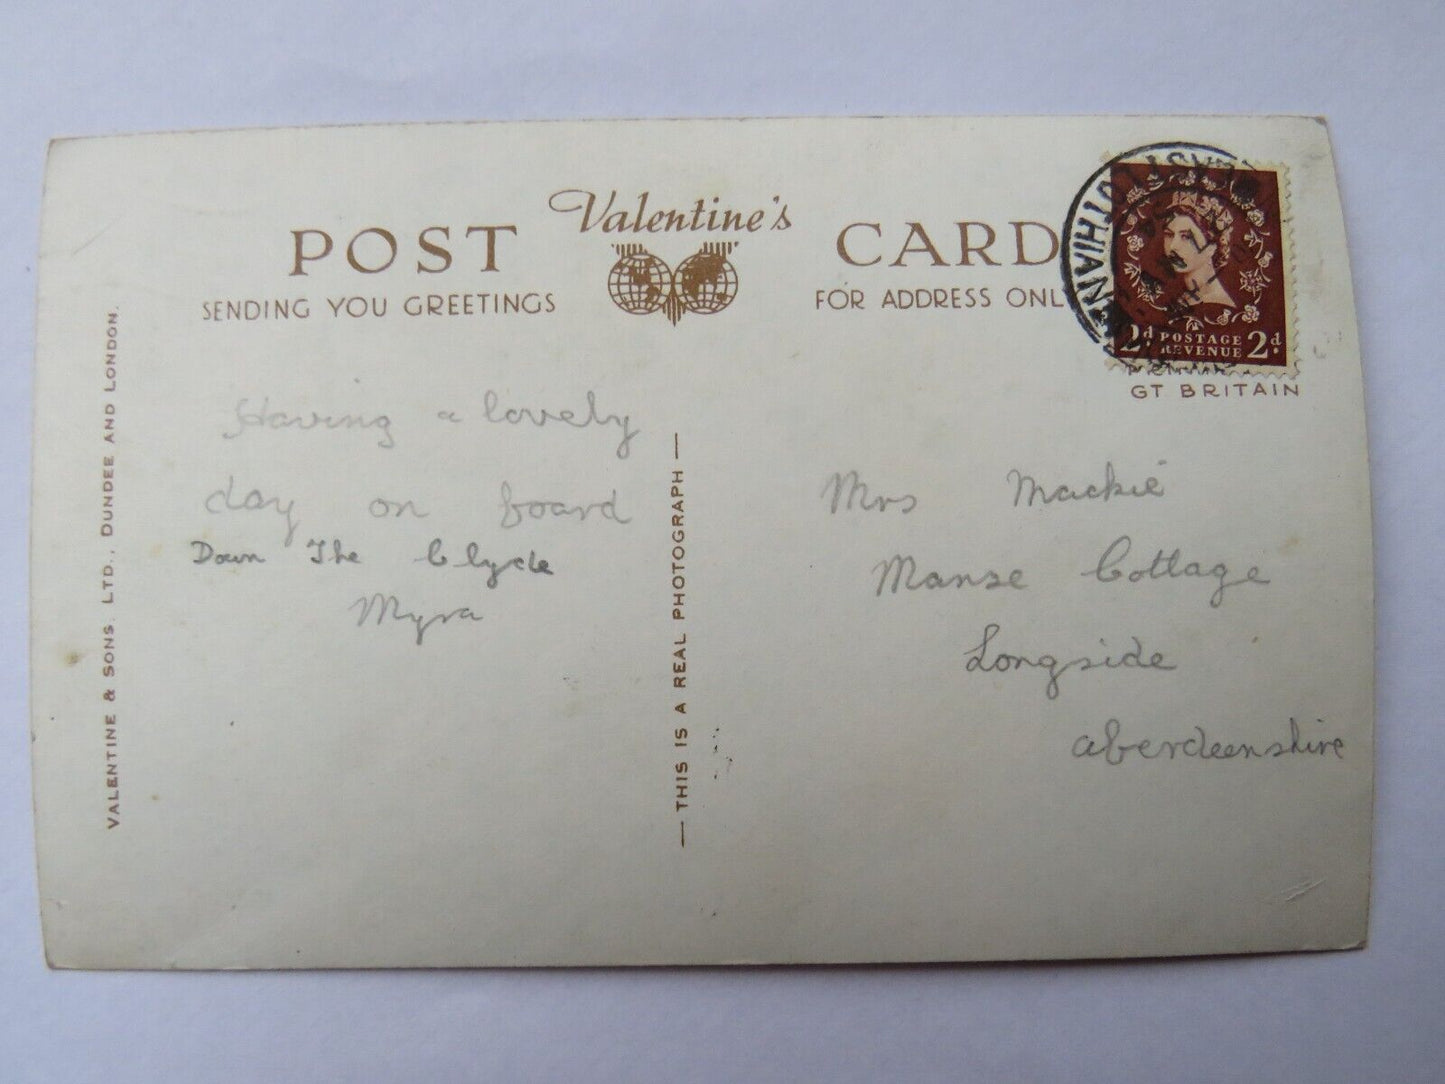 POST Valentine's CARD
SENDING YOU GREETINGS
FOR ADDRESS ONL
EAST LOTHIAN
2d POSTAGE REVENUE 2d
GT BRITAIN
VALENTINE & SONS. LTD., DUNDEE AND LONDON.
Having a lovely
day on board
Down The Clyde
Myra
— THIS IS A REAL PHOTOGRAPH —
Mrs Mackie
Manse Cottage
Longside
aberdeenshire